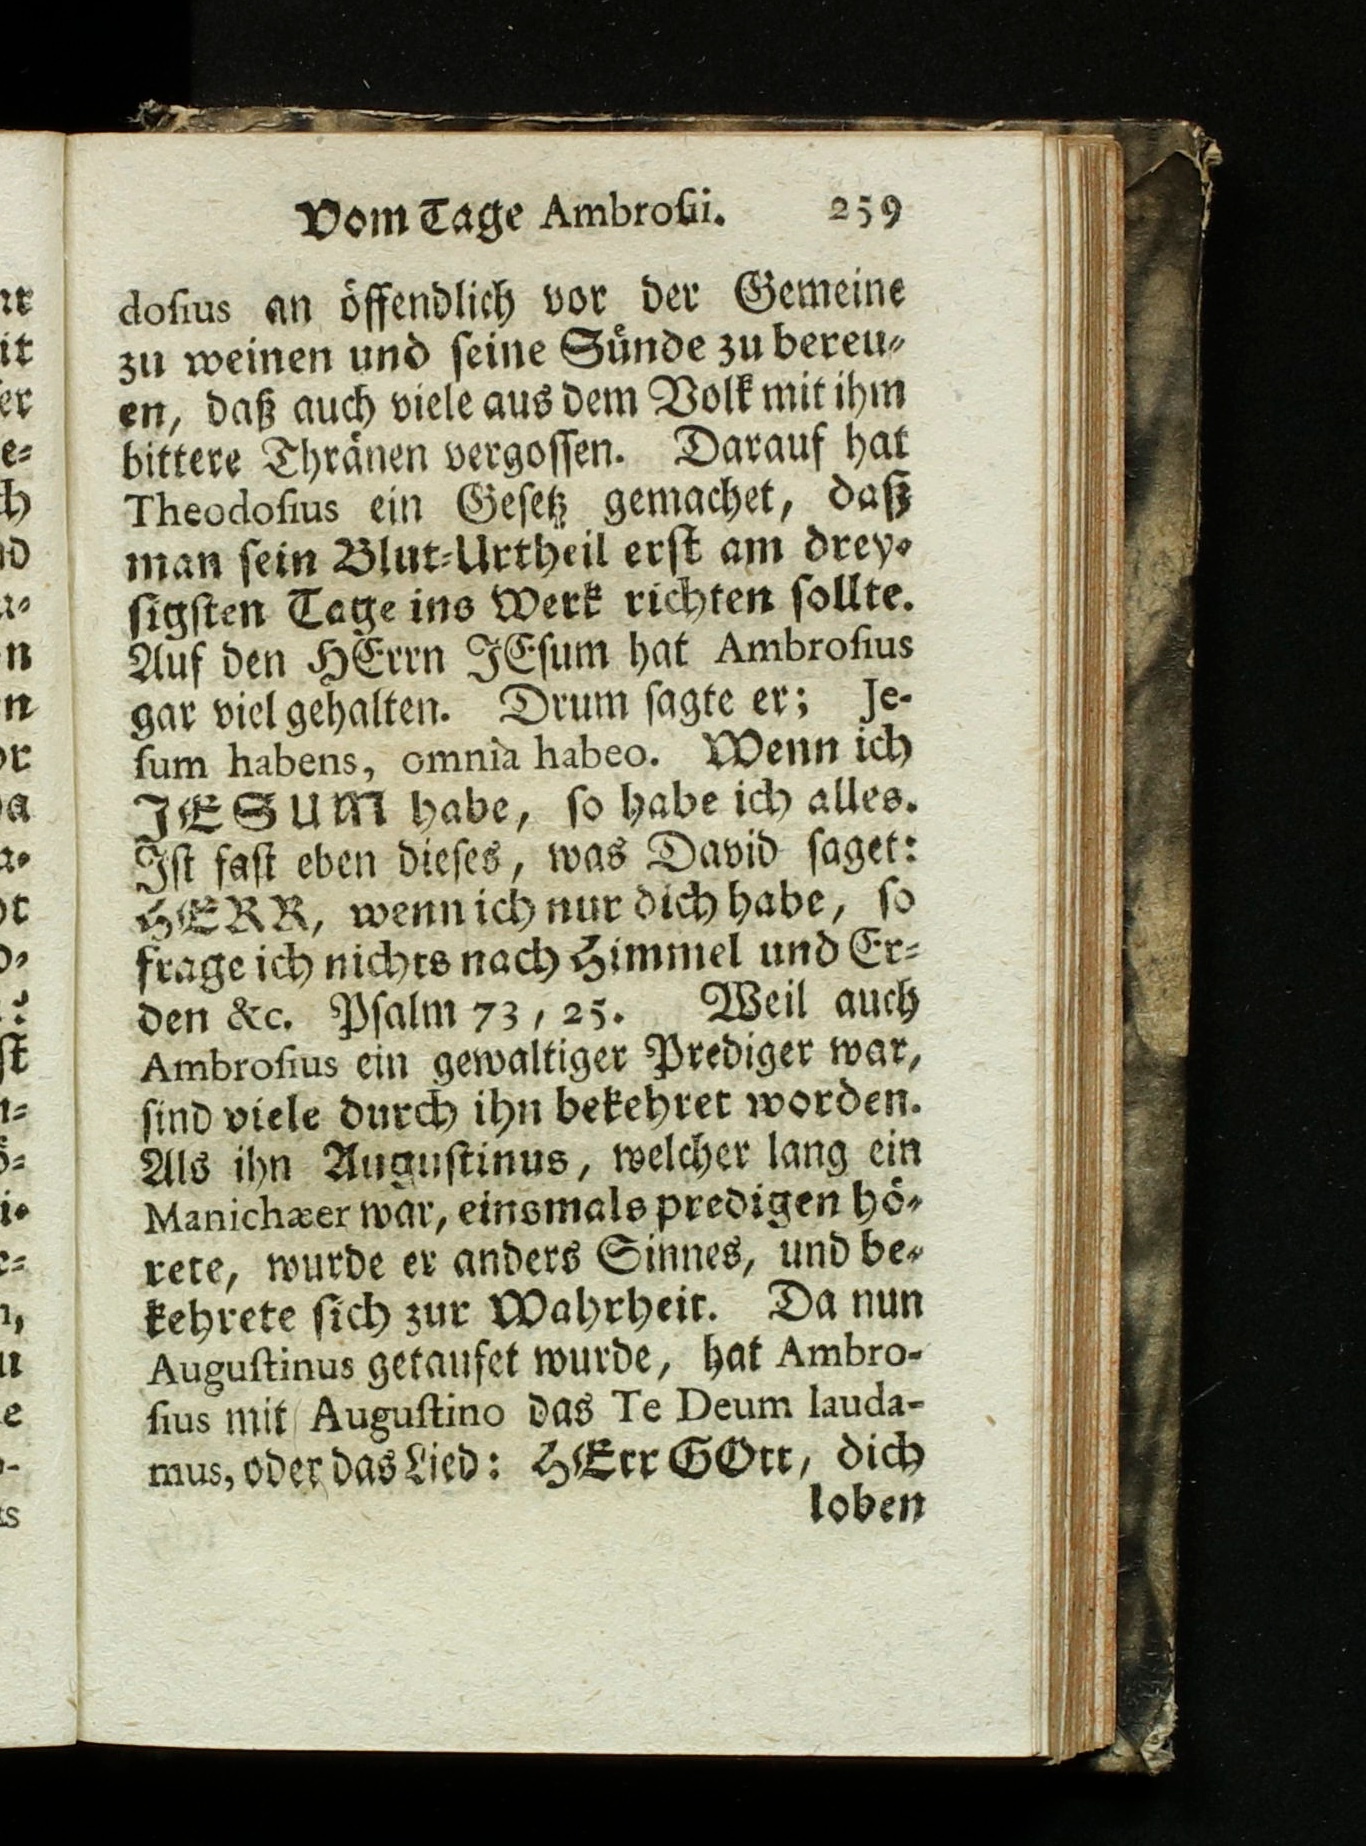 Vom Tage Ambroſii. 259
doſius an öffendlich vor der Gemeine
zu weinen und ſeine Sünde zu bereu⸗
en, daß auch viele aus dem Volk mit ihm
bittere Thränen vergoſſen. Darauf hat
Theodoſius ein Geſetz gemachet, daß
man ſein Blut⸗Urtheil erſt am drey⸗
ſigſten Tage ins Werk richten ſollte.
Auf den HErrn JEſum hat Ambroſius
gar viel gehalten. Drum ſagte er; Je-
ſum habens, omnia habeo. Wenn ich
JESUM habe, ſo habe ich alles.
Iſt faſt eben dieſes, was David ſaget:
HERR, wenn ich nur dich habe, ſo
frage ich nichts nach Himmel und Er⸗
den &c. Pſalm 73, 25. Weil auch
Ambroſius ein gewaltiger Prediger war,
ſind viele durch ihn bekehret worden.
Als ihn Auguſtinus, welcher lang ein
Manichæer war, einsmals predigen hö⸗
rete, wurde er anders Sinnes, und be⸗
kehrete ſich zur Wahrheit. Da nun
Auguſtinus getaufet wurde, hat Ambro-
ſius mit Auguſtino das Te Deum lauda-
mus, oder das Lied: HErr GOtt, dich
loben